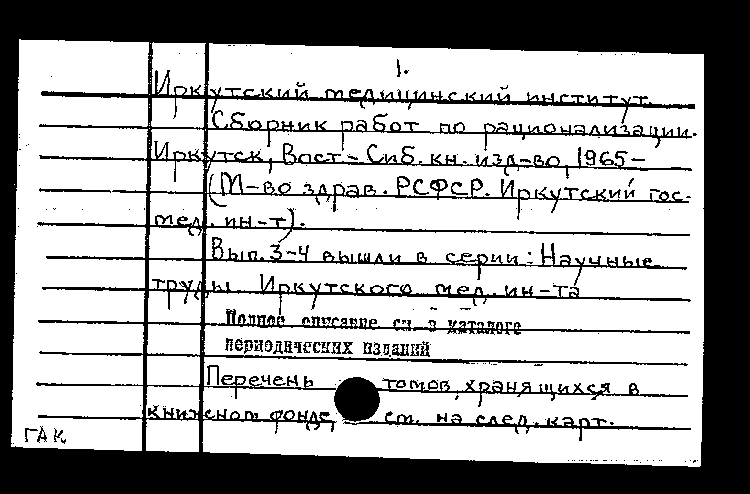 1.
Иркутский медицинский институт.
Сборник работ по рационализации.
Иркутск, Вост.-Сиб. кн. изд-во, 1965-
(М-во здрав. РСФСР. Иркутский гос.
мед. ин-т).
Вып. 3-4 вышли в серии: Научные
труды Иркутского мед. ин-та
Полное описание см. в каталоге
периодических изданий
Перечень томов, хранящихся в
книжном фонде, см. на след. карт.
ГАК